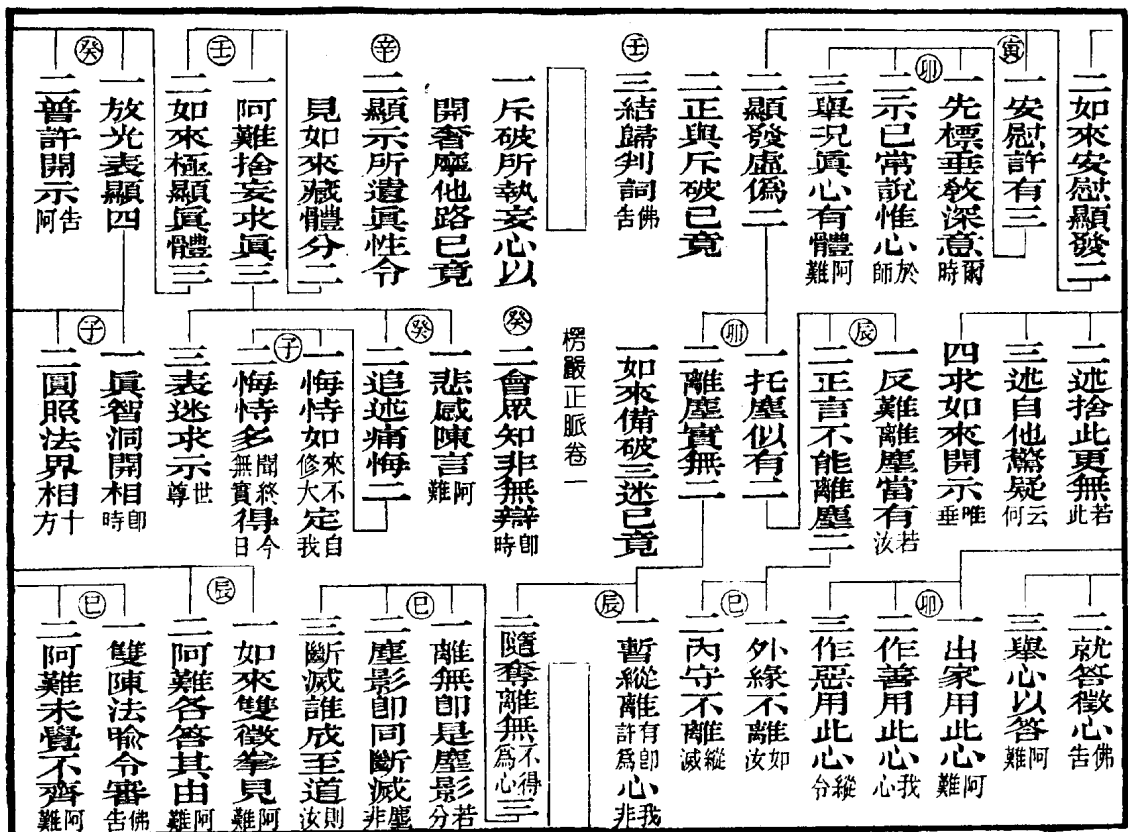 二如來安慰顯發二
寅
一安慰許有三
卯
一先標垂敎深意爾時
二示已常說惟心於師
三舉況眞心有體阿難
二顯發虛僞二
二正與斥破已竟
壬
三結歸判詞佛告
一斥破所執妄心以
開奢摩他路已竟
辛
二顯示所遺眞性令
見如來藏體分二
壬
一阿難捨妄求眞三
二如來極顯眞體三
癸
一放光表顯四
二普許開示告阿
二述捨此更無若此
三述自他驚疑云何
四求如來開示唯垂
辰
一反難離塵當有若汝
二正言不能離塵二
卯
一托塵似有二
二離塵實無二
一如來備破三迷已竟
楞嚴正脈卷一
癸
二會眾知非無辯卽時
癸
一悲感陳言阿難
二追述痛悔二
子
一悔恃如來不修大定自我
二悔恃多聞無實終得今日
三表迷求示世尊
子
一眞智洞開相卽時
二圓照法界相十方
二就答徵心佛告
三舉心以答阿難
卯
一出家用此心阿難
二作善用此心我心
三作惡用此心縱令
巳
一外緣不離如汝
二內守不離縱滅
辰
一暫縱離有許爲卽心我非
二隨奪離無不得爲心三
巳
一離無卽是塵影若分
二塵影卽同斷滅塵非
三斷滅誰成至道則汝
辰
一如來雙徵拳見阿難
二阿難各答其由阿難
巳
一雙陳法喻令審佛告
二阿難未覺不齊阿難